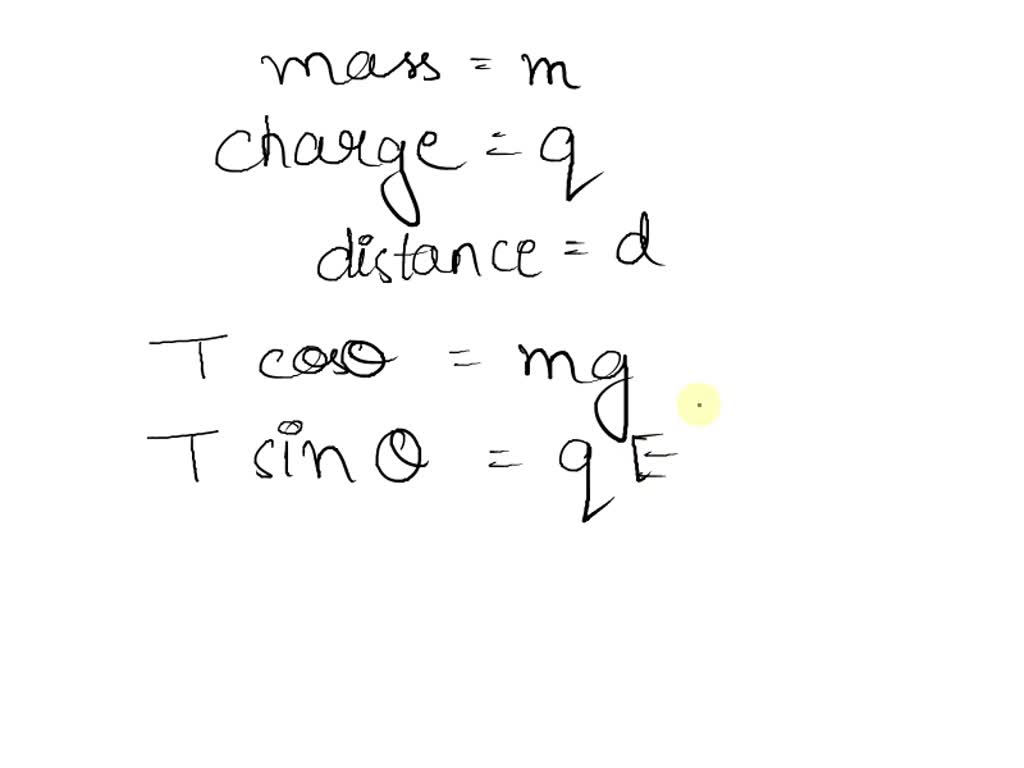 mass = m
charge = q
distance = d
T cosθ = mg
T sin θ = qE